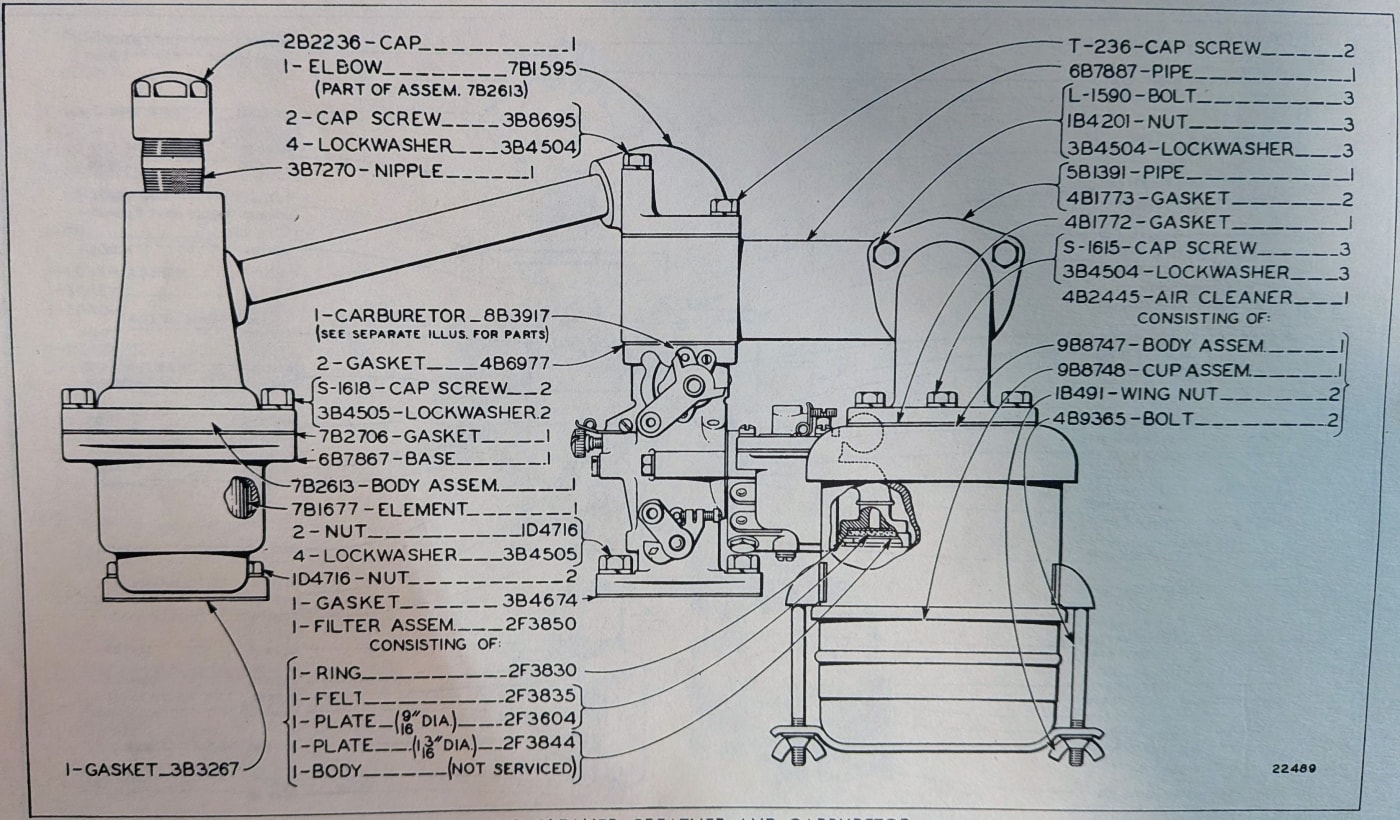 2B2236-CAP__________1
1-ELBOW________7B1595
(PART OF ASSEM. 7B2613)
2-CAP SCREW____3B8695
4-LOCKWASHER___3B4504
3B7270-NIPPLE_____1
1-CARBURETOR_8B3917
(SEE SEPARATE ILLUS. FOR PARTS)
2-GASKET____4B6977
S-1618-CAP SCREW__2
3B4505-LOCKWASHER.2
7B2706-GASKET____1
6B7867-BASE______1
7B2613-BODY ASSEM._____1
7B1677-ELEMENT______1
2-NUT__________1D4716
4-LOCKWASHER___3B4505
1D4716-NUT__________2
1-GASKET_______3B4674
1-FILTER ASSEM.___2F3850
CONSISTING OF:
1-RING_________2F3830
1-FELT_________2F3835
1-PLATE_(9/16" DIA.)___2F3604
1-PLATE__(1 3/16" DIA.)_2F3844
1-BODY_____(NOT SERVICED)
1-GASKET_3B3267
T-236-CAP SCREW_____2
6B7887-PIPE_________1
L-1590-BOLT________3
1B4201-NUT________3
3B4504-LOCKWASHER___3
5B1391-PIPE________1
4B1773-GASKET______2
4B1772-GASKET______1
S-1615-CAP SCREW____3
3B4504-LOCKWASHER___3
4B2445-AIR CLEANER___1
CONSISTING OF:
9B8747-BODY ASSEM._____1
9B8748-CUP ASSEM.______1
1B491-WING NUT_______2
4B9365-BOLT_________2
22489
AND CARBURETOR